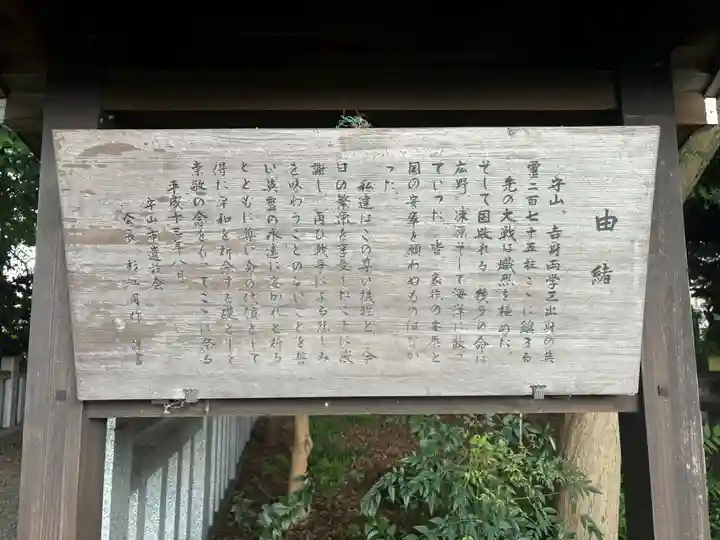 由緒
守山、吉身両学区出身の英
霊二百七十五柱ここに鎮まる
先の大戦は熾烈を極めた。
そして困難な幾多の命は
広野、凍原そして海洋に散っ
ていった。皆、家族の安泰と
国の安泰を願わぬものはなか
った。
私達はこの尊い犠牲と、今
日の繁栄を享受したことに感
謝し、再び戦争による悲しみ
を味わうことのないことを誓
い英霊の永遠に安かれと祈る
とともに尊い命の代償として
得た平和を祈念する礎として
崇敬の念をもってここに祭る
平成十三年八月
守山市遺族会
会長 杉江